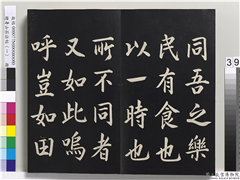 同吾之樂
民有食也
以一時也
所不同者
又如此嗚
呼豈如田